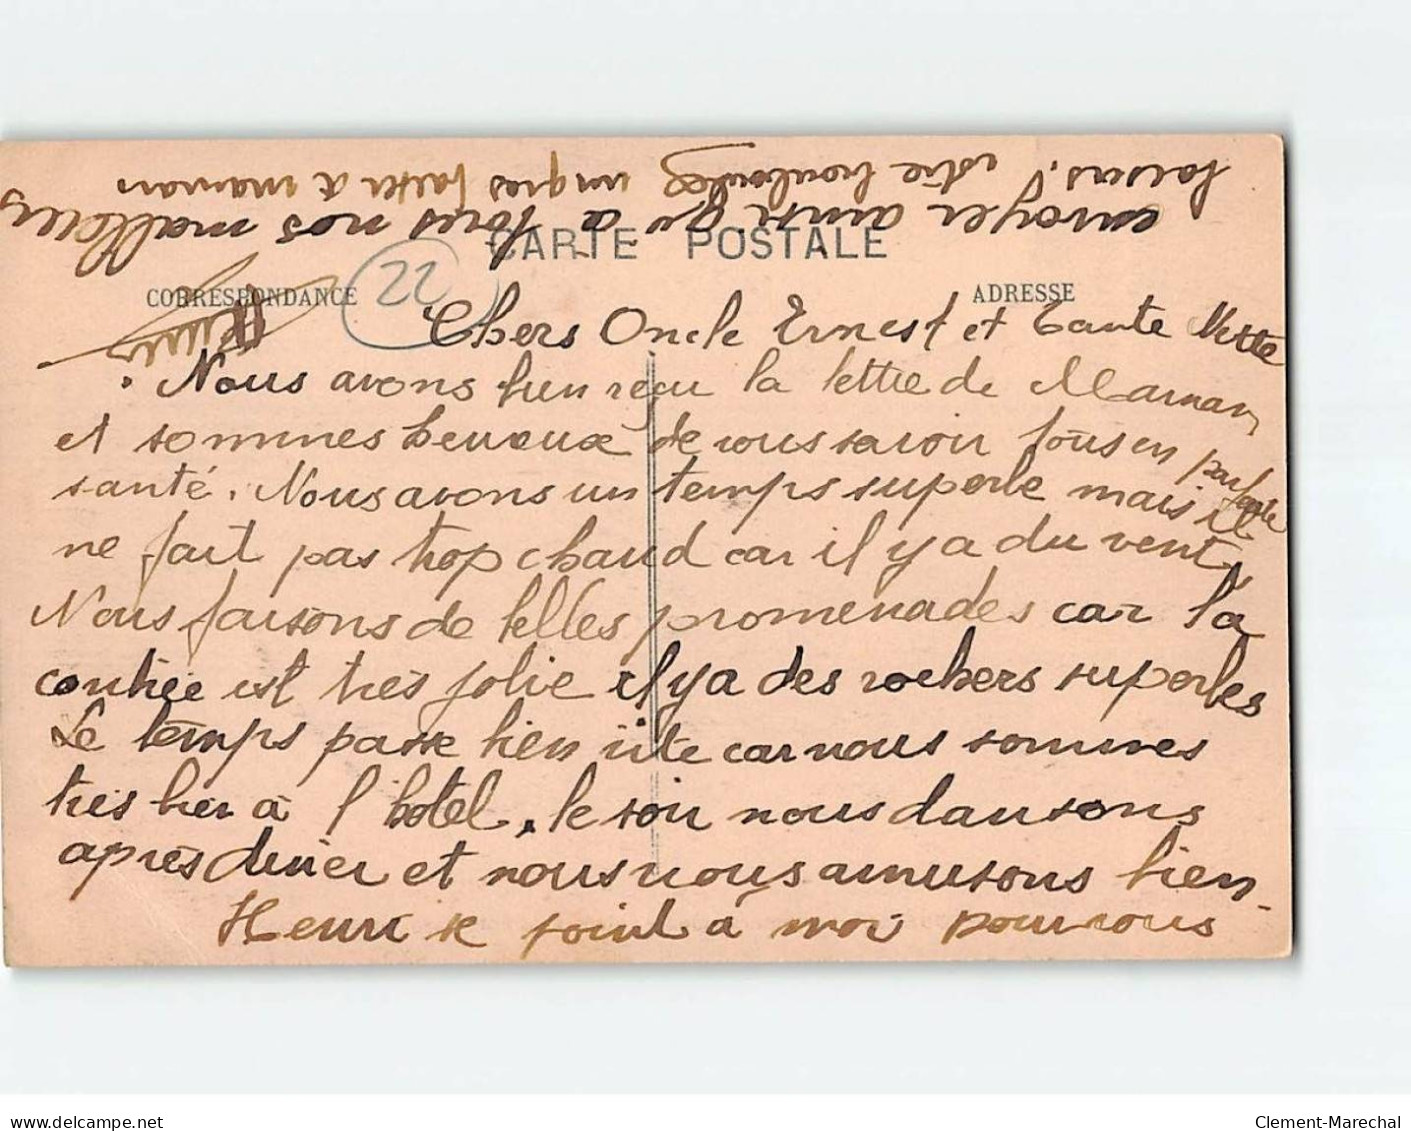 CARTE POSTALE
CORRESPONDANCE
22
ADRESSE
Chers Oncle Ernest et Tante
Nous avons bien reçu la lettre de Maman
et sommes heureux de vous savoir tous en parfaite
santé. Nous avons un temps superbe mais il
ne fait pas trop chaud car il y a du vent,
Nous faisons de belles promenades car la
contrée est très jolie il y a des rochers superbes
Le temps passe bien vite car nous sommes
très bien à l'hôtel, le soir nous dansons
après diner et nous nous amusons bien -
Henri se joint à moi pour vous
envoyer ainsi qu'à tous nos meilleurs
baisers. votre un gros baiser à maman
delcampe.net
Clement-Marechal